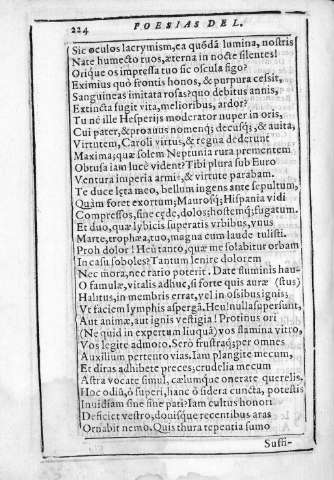 224 POESIAS DEL.
Sic oculos lacrymism, ea quódã lumina, nostris
Nate humecto tuos, æterna in nocte silentes!
Orique os impressa tuo sic oscula figo?
Eximius quo frontis honos, & purpura cessit,
Sanguineas imitata rosas? quo debitus annis,
Extincta fugit vita, melioribus, ardor?
Tu né ille Hesperijs moderator nuper in oris,
Cui pater, & proauus nomenq; decusq;, & auita,
Virtutem, Caroli virtus, & regna dederunt
Maxima; quæ solem Neptunia rura prementem
Obtusa iam lucè vident? Tibi plura sub Euro
Ventura imperia armis, & virtute parabam.
Te duce lęta meo, bellum ingens ante sepultum,
Quàm foret exortum; Maurosq; Hispania vidi
Compressos, sine cęde, dolos; hostemq; fugatum.
Et duo, quæ lybicis superatis vrbibus, vnus
Marte, trophæa, tuo, magna cum laude tulisti.
Proh dolor! Heu tanto, quæ me solabitur orbam
In casu soboles? Tantum lenire dolorem
Nec mora, nec ratio poterit. Date fluminis hau-
O famulæ, vitalis adhuc, si forte quis auræ (stus)
Halitus, in membris errat, vel in ossibus ignis;
Vt faciem lymphis aspergã. Heu! nulla supersunt,
Aut animæ, aut ignis vestigia! Protinus ori
(Ne quid in expertum liuquã) vos flamina vitro,
Vos legite admoto. Serò frustraq; per omnes
Auxilium pertento vias. Iam plangite mecum,
Et diras adhibete preces; crudelia mecum
Astra vocate simul, cælumque onerate querelis.
Hoc odiũ, ò superi, hanc ò sidera cuncta, potestis
Inuidiam sine fine pati? Iam cultus honori
Deficiet vestro, donisque recentibus aras
Ornabit nemo. Quis thura tepentia sumo
Suffi-